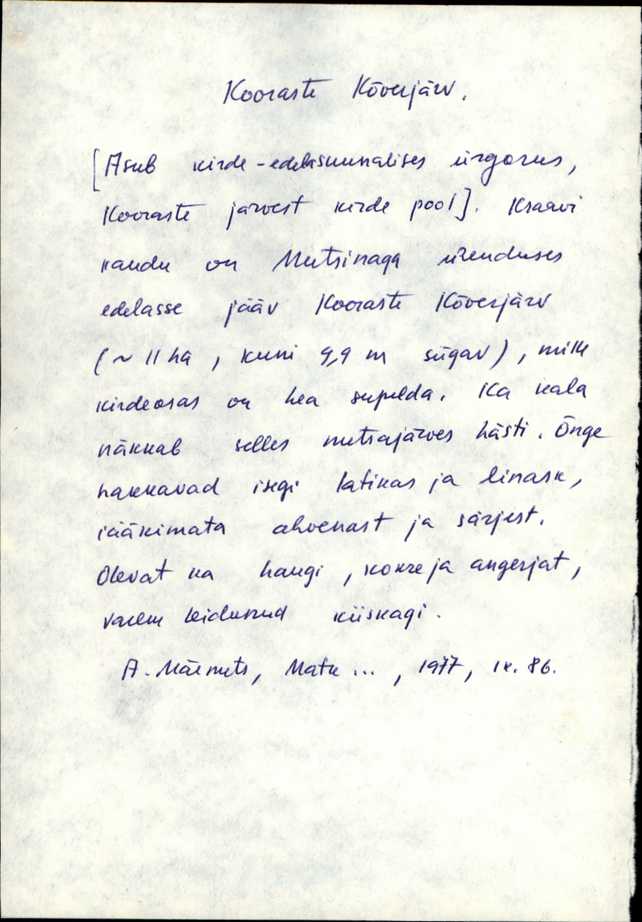 Kooraste Kõverjärv.
[Asub kirde-edelasuunalises ürgorus,
Kooraste järvest kirde pool]. Kraavi
kaudu on Mutsinaga ühenduses
edelasse jääv Kooraste Kõverjärv
(~ 11 ha, kuni 9,9 m sügav), mille
kirdeosas on hea supelda. Ka kala
näkkab selles metsajärves hästi. Õnge
hakkavad isegi latikas ja linask,
rääkimata ahvenast ja särjest.
Olevat ka haugi, kokre ja angerjat,
varem leidunud kiiskagi.
A. Mäemets, Matk ..., 1977, lk. 86.